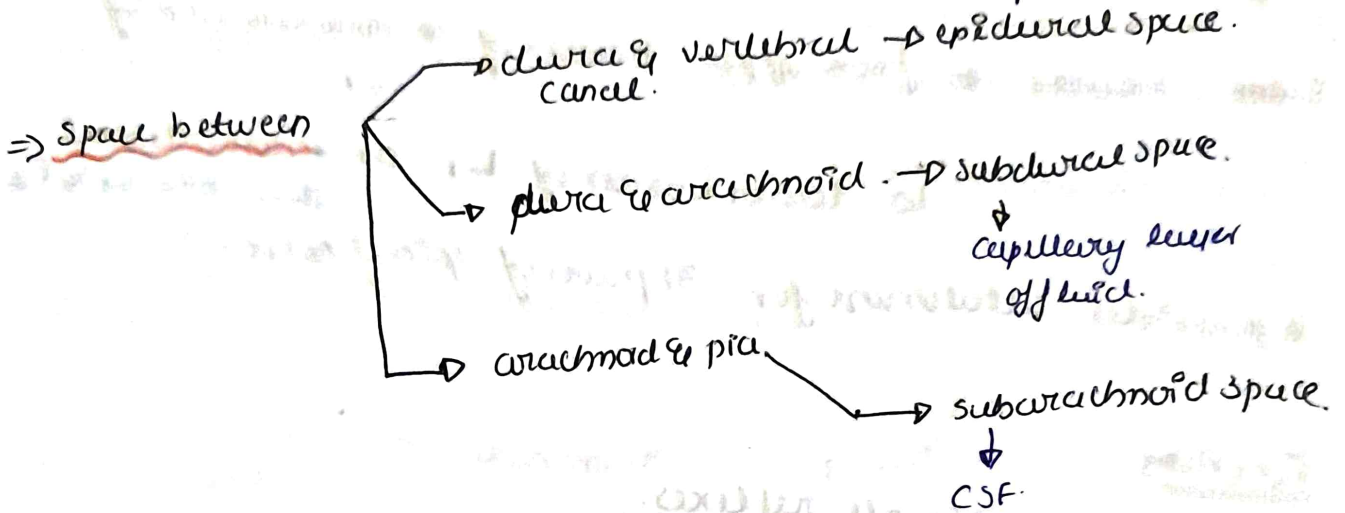 ⇒ Space between
dura & vertebral → epidural space.
canal.
dura & arachnoid. → subdural space.
↓
capillary layer
of fluid.
arachnoid & pia → subarachnoid space.
↓
CSF.